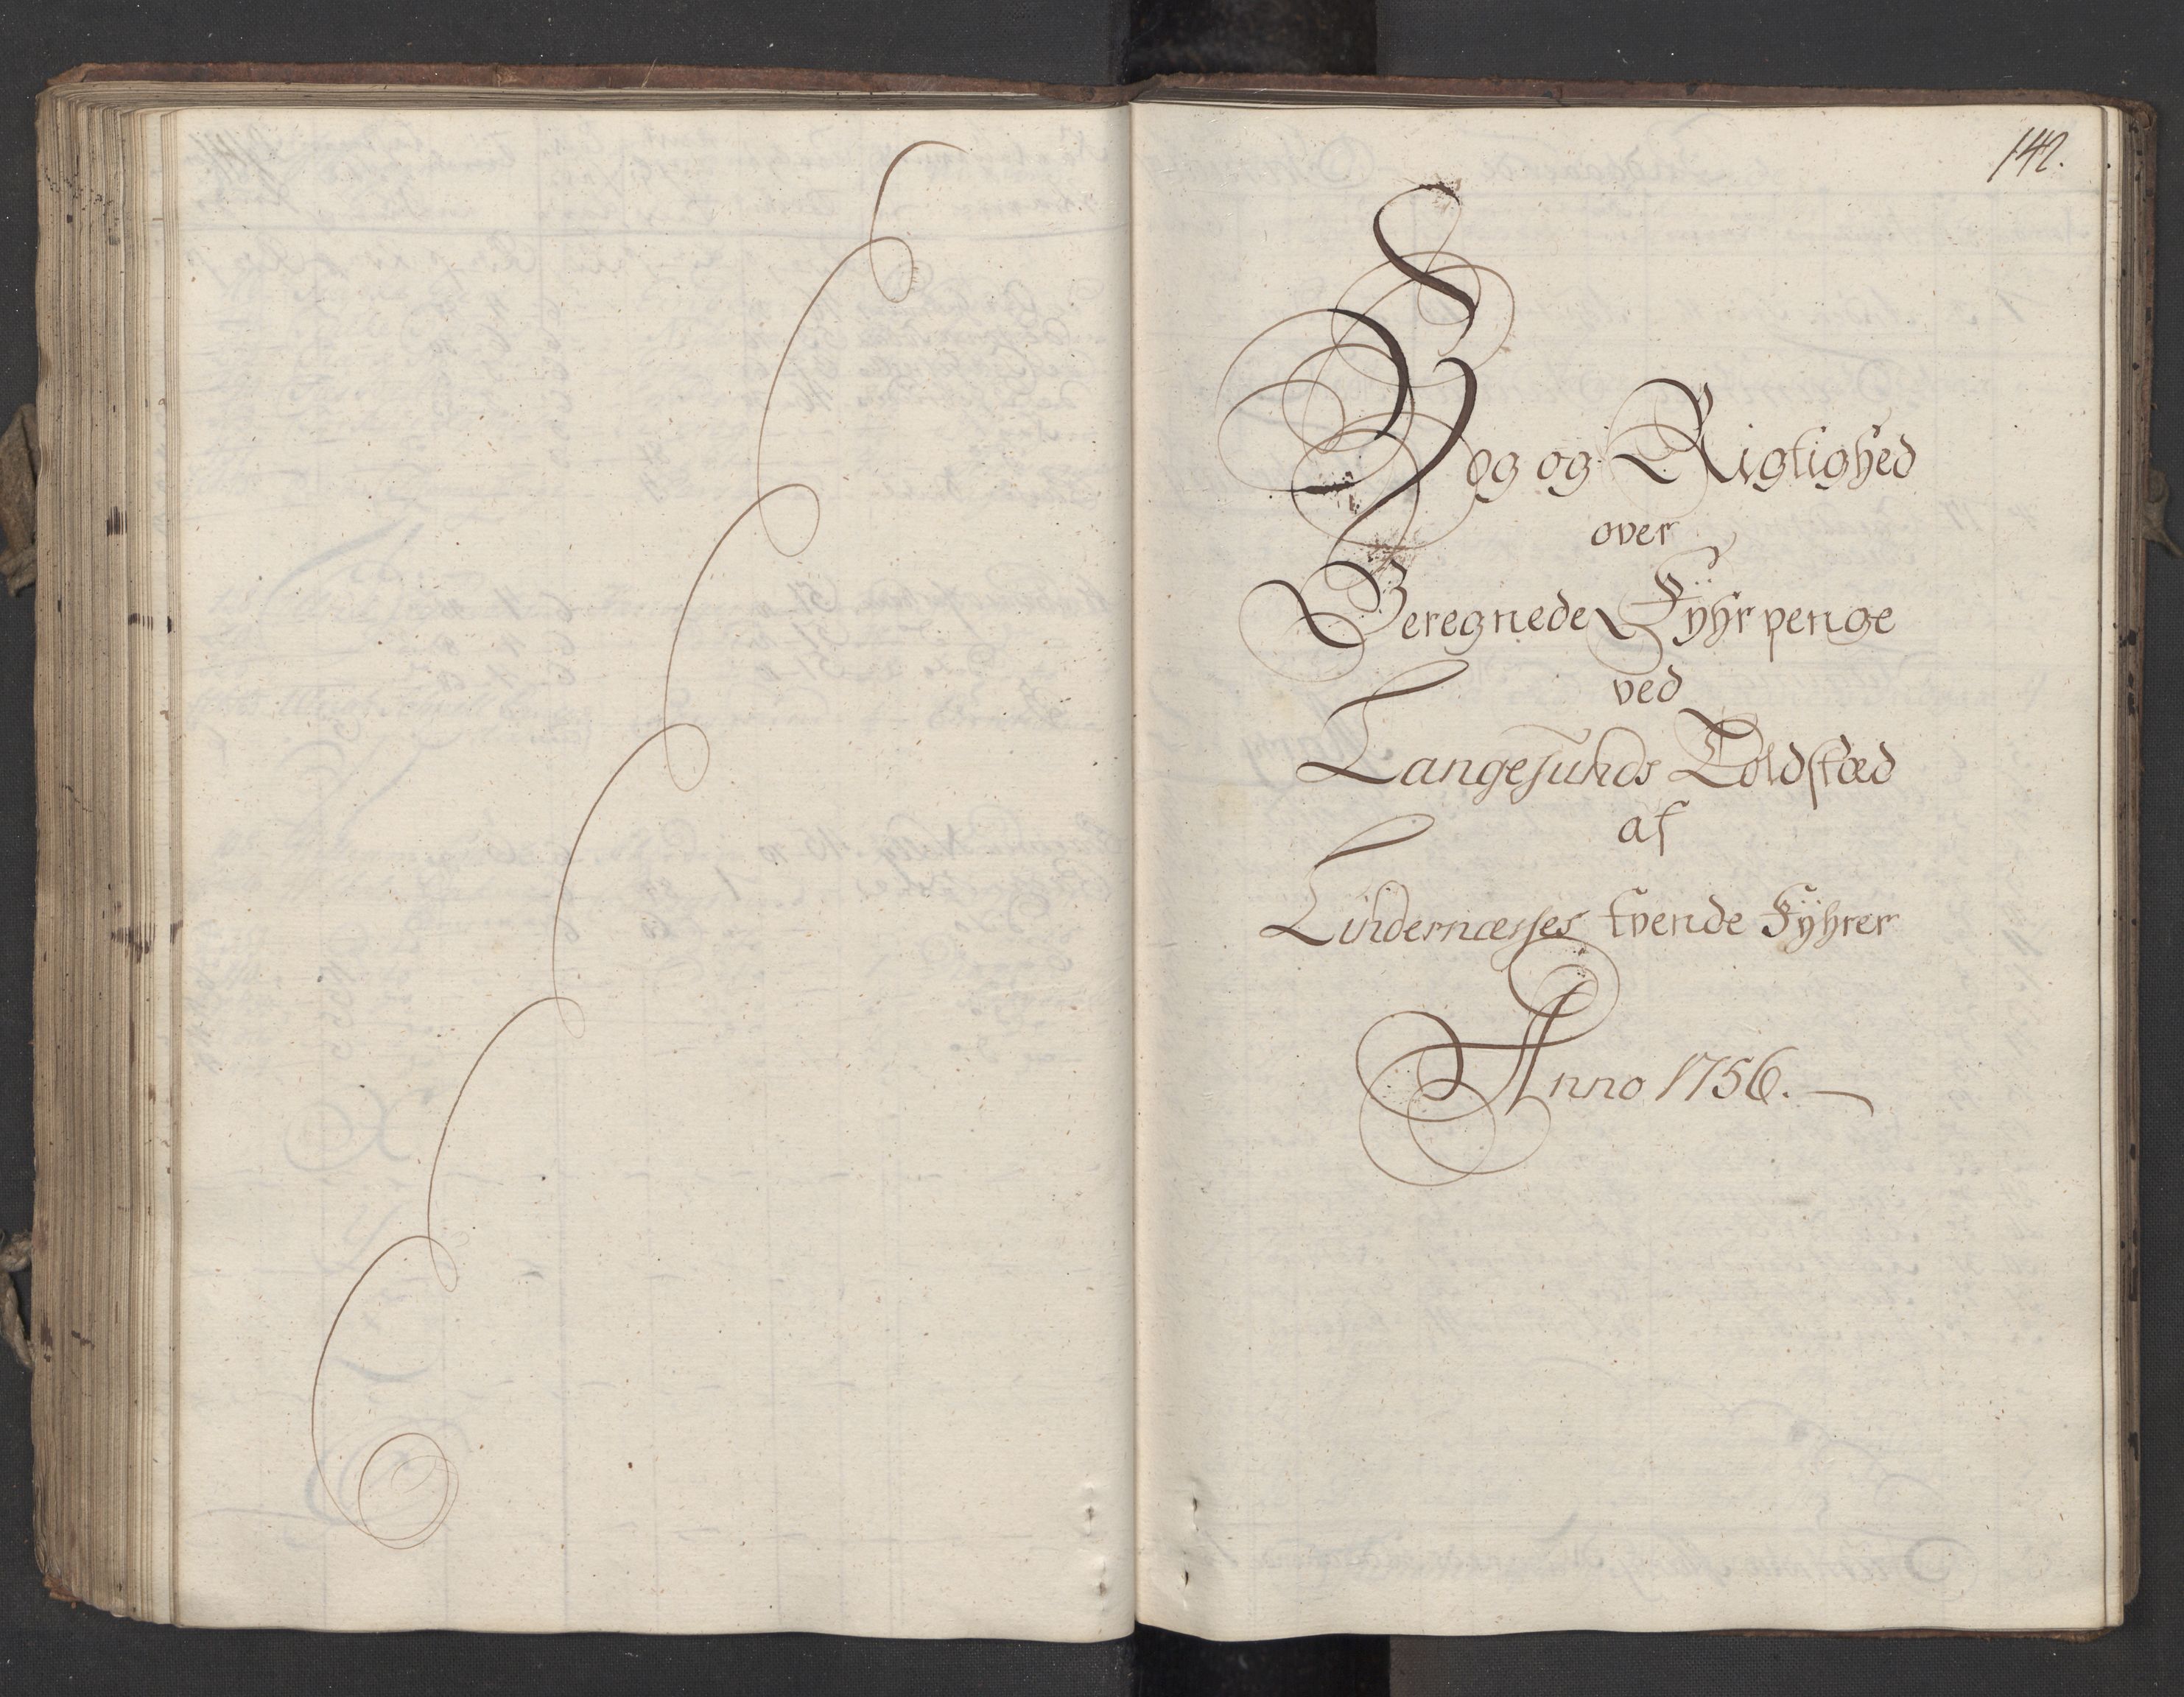 142.
Bog og Rigtighed
over
Beregnede Fÿhrpenge
ved
Langesunds Toldstæd
af
Lindernæsses tvende Fÿhrer
Anno 1756.